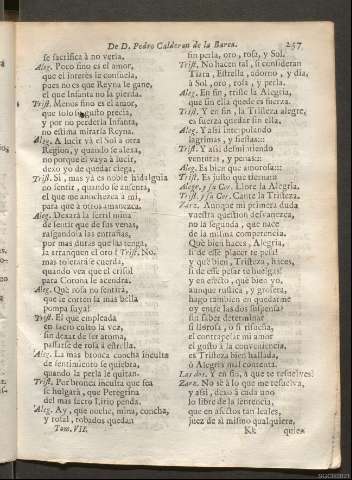 De D. Pedro Calderon de la Barca. 257
se sacrifica à no verla.
Aleg. Poco fino es el amor,
que el interès le consuela,
pues no es que Reyna le gane,
el que Infanta no la pierda.
Trist. Menos fino es el amor,
que solo su gusto precia,
y por no perderla Infanta,
no estima mirarla Reyna.
Aleg. A lucir và el Sol à otra
Region, y quando se alexa,
no porque el vaya à lucir,
dexo yo de quedar ciega.
Trist. Si, mas yà es noble hidalguia
no sentir, quando se ausenta,
el que me anochezca à mi,
para que à otros amanezca.
Aleg. Dexarà la fertil mina
de sentir que de sus venas,
rasgandola las entrañas,
por mas duras que las tenga,
la arranquen el oro? Trist. No.
mas tolerarà cuerda,
quando vea que el crisol
para Corona le acendra.
Aleg. Què rosa no sentirà,
que le corten la mas bella
pompa suya?
Trist. El que empleada
en sacro culto la vea,
sin dexar de ser aroma,
passarse de rosa à estrella.
Aleg. La mas bronca concha inculta
de sentimiento se quiebra,
quando la perla le quitan.
Trist. Por bronca inculta que sea
se hulgarà, que Peregrina
del mas sacro Lirio penda.
Aleg. Ay, que noche, mina, concha,
y rosal, robados quedan
Tom. VII.
sin perla, oro, rosa, y Sol.
Trist. No hacen tal, si consideran
Tiara, Estrella, adorno, y dia,
à Sol, oro, rosa, y perla.
Aleg. En fin, triste la Alegria,
que sin ella quede es fuerza.
Trist. Y en fin, la Tristeza alegre,
es fuerza quedar sin ella.
Aleg. Y assi interpolando
lagrimas, y fiestas:::
Trist. Y assi desmintiendo
venturas, y penas:::
Aleg. Es bien que amorosa:::
Trist. Es justo que tierna:::
Alegr. y su Cor. Llore la Alegria.
Trist. y su Cor. Cante la Tristeza.
Zara. Aunque mi primera duda
vuestra question desvanezca,
no la segunda, que nace
de la misma competencia.
Què bien haces, Alegria,
si de esse placer te pesa!
y què bien, Tristeza, haces,
si de esse pesar te huelgas!
y en efecto, què bien yo,
aunque rustica, y grosera,
hago tambien en quedarme
oy entre las dos suspensa!
sin saber determinar
si llorosa, ò si risueña,
el contrapesar mi amor
el gusto à la conveniencia,
es Tristeza bien hallada,
ò Alegria mal contenta.
Las dos. Y en fin, à què te resuelves?
Zara. No sè à lo que me resuelva,
y assi, dexo à cada uno
lo libre de la sentencia,
que en afectos tan leales,
juez de sì mismo qualquiera,
Kk quiex